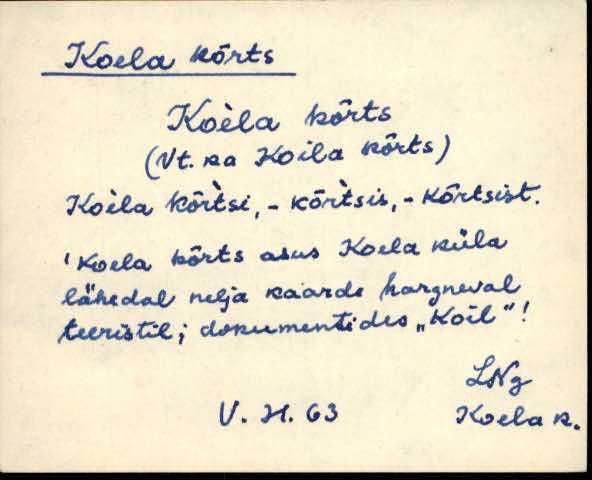 Koela kõrts
Koèla kõrts
(Vt. ka Koila kõrts)
Koèla kõrtsi, - kõrtsis, - kõrtsist.
'Koela kõrts asus Koela küla
lähedal nelja kaarde hargneval
teeristil; dokumentides „Koil"!
LNg
V. H. 63
Koela k.